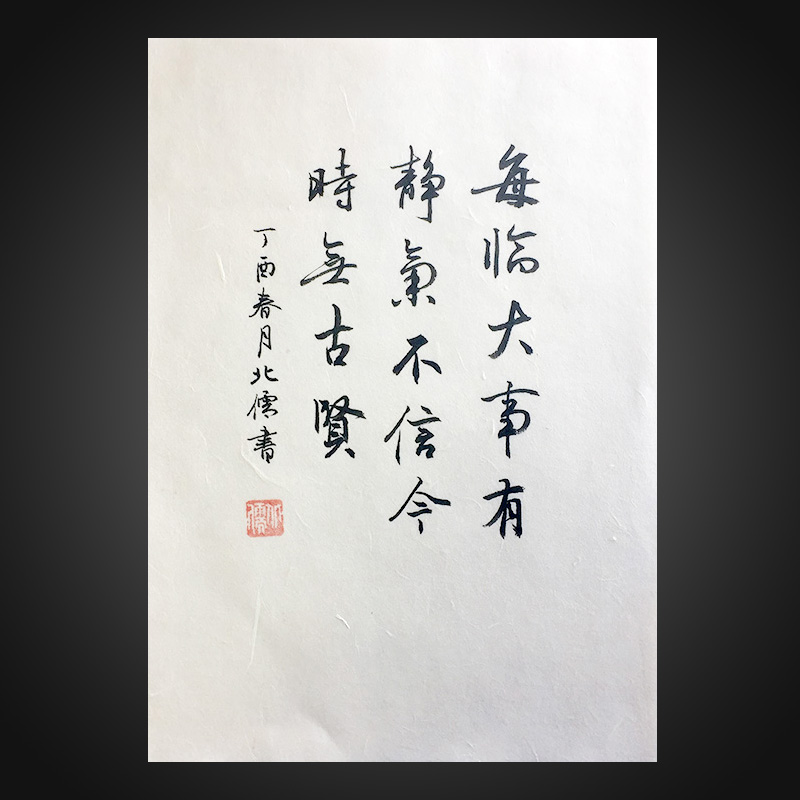 每临大事有
静氣不信今
時無古賢
丁酉春月北儒書
北儒